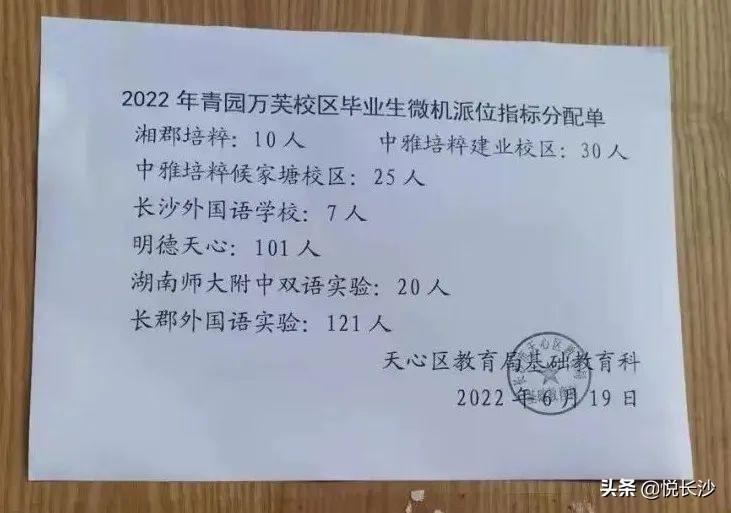 2022年青园万芙校区毕业生微机派位指标分配单
湘郡培粹：10人 中雅培粹建业校区：30人
中雅培粹侯家塘校区：25人
长沙外国语学校：7人
明德天心：101人
湖南师大附中双语实验：20人
长郡外国语实验：121人
天心区教育局基础教育科
2022年6月19日
头条 @悦长沙